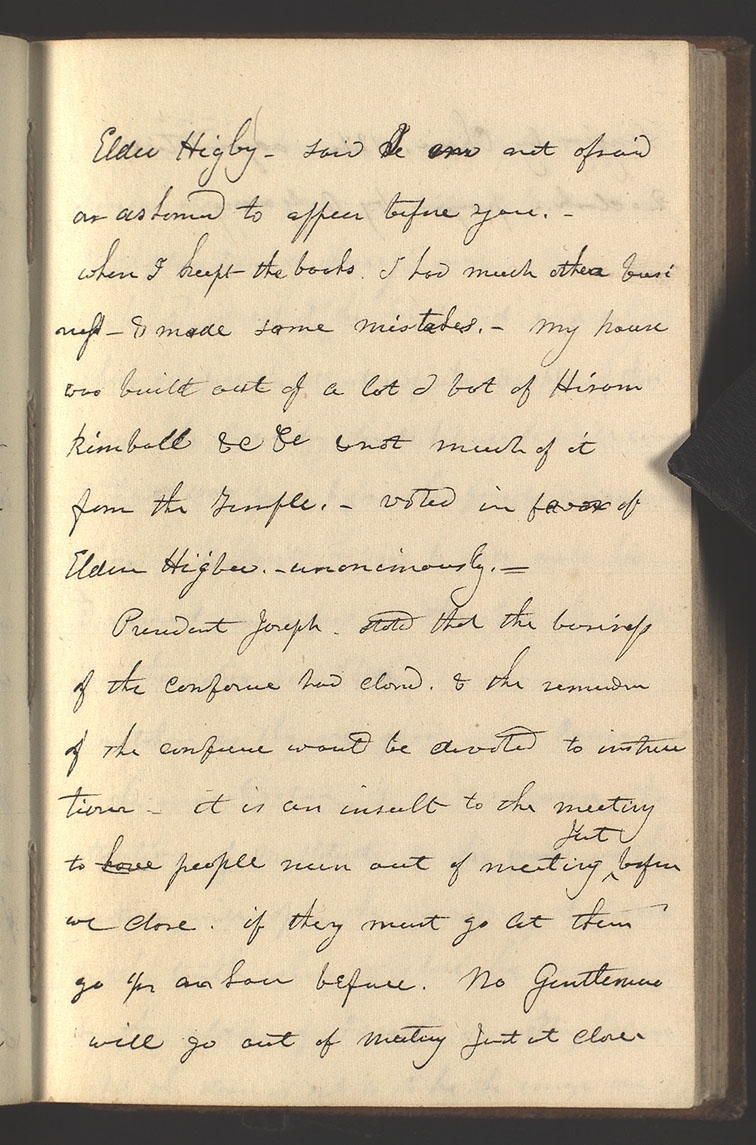 Elder Higby - said I am not afraid
or ashamed to appear before you. -
when I keept the books. I had much other busi
ness - & made some mistakes. - my house
was built out of a lot I bot of Hiram
Kimball &c &c & not much of it
from the Temple. - voted in favor of
Elder Higbee. - unanimously. =
President Joseph. stated that the business
of the conference had closed. & the remainder
of the conference would be devoted to instruc
tion - it is an insult to the meeting
to have people run out of meeting Just before
we close. if they must go let them
go ½ an hour before. No Gentleman
will go out of meeting Just at close